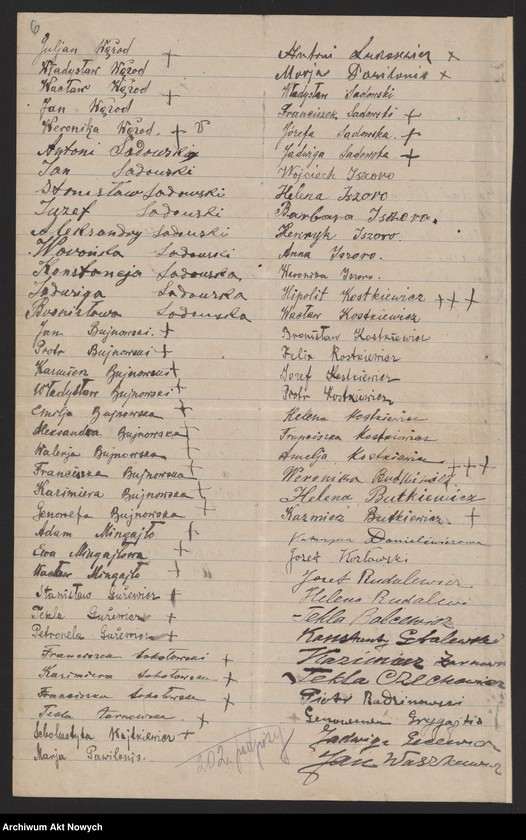 6
Juljan Wązod +
Władysław Wązod
Wacław Wązod +
Jan Wązod
Weronika Wązod. + V
Antoni Sadowski
Jan Sadowski
Stonisław Sadowski
Juzef Sadouski
Aleksandry Sadouski
Sadouski
Konstancja Sadouska
Jadwiga Sadouska
Bronisłowa Sadouska
Jan Bujnowski. +
Piotr Bujnowski +
Kazimierz Bujnowski +
Władysław Bujnowski +
Emilja Bujnowska +
Aleksandra Bujnowska
Walerja Bujnowska
Franciszka Bujnowska
Kazimiera Bujnowska
Genowefa Bujnowska +
Adam Mingajło +
Ewa Mingajłowa +
Wacław Mingajło +
Stanisław Gużewicz +
Tekla Gużewicz +
Petronela Gużewicz +
Franciszek Sokołowski +
Kazimiera Sokołowska +
Franciszka Sokołowska x
Tekla Tarnowska x
Wojtkiewicz +
Marja Pawilonis.
Antoni Łukaszewicz x
Marja Pawilonis x
Władysław Sadowski
Franciszek Sadowski +
Józefa Sadowska. +
Jadwiga Sadowska +
Wojciech Iszoro
Helena Iszoro
Barbara Iszora.
Henryk Iszoro.
Anna Iszoro.
Weronika Iszoro.
Hipolit Kostkiewicz +++
Wacław Kostkiewicz
Bronisław Kostkiewicz
Felix Kostkiewicz
Jozef Kostkiewicz
Piotr Kostkiewicz
Helena Kostkiewicz
Franciszka Kostkiewicz
Amelja Kostkiewicz
Weronika Butkiewicz +++
Helena Butkiewicz
Kazimierz Butkiewicz. +
Katarzyna Danielewiczowa
Jozef Kozłowski
Jozef Rudalewicz
Helena Rudalewi
Tekla Balcewicz
Konstanty
Kazimierz
Tekla
Piotr Radzinowski
Genowefa Grygajtis
Jadwiga
Jan Waszkiewicz
202 podpisy
Archiwum Akt Nowych